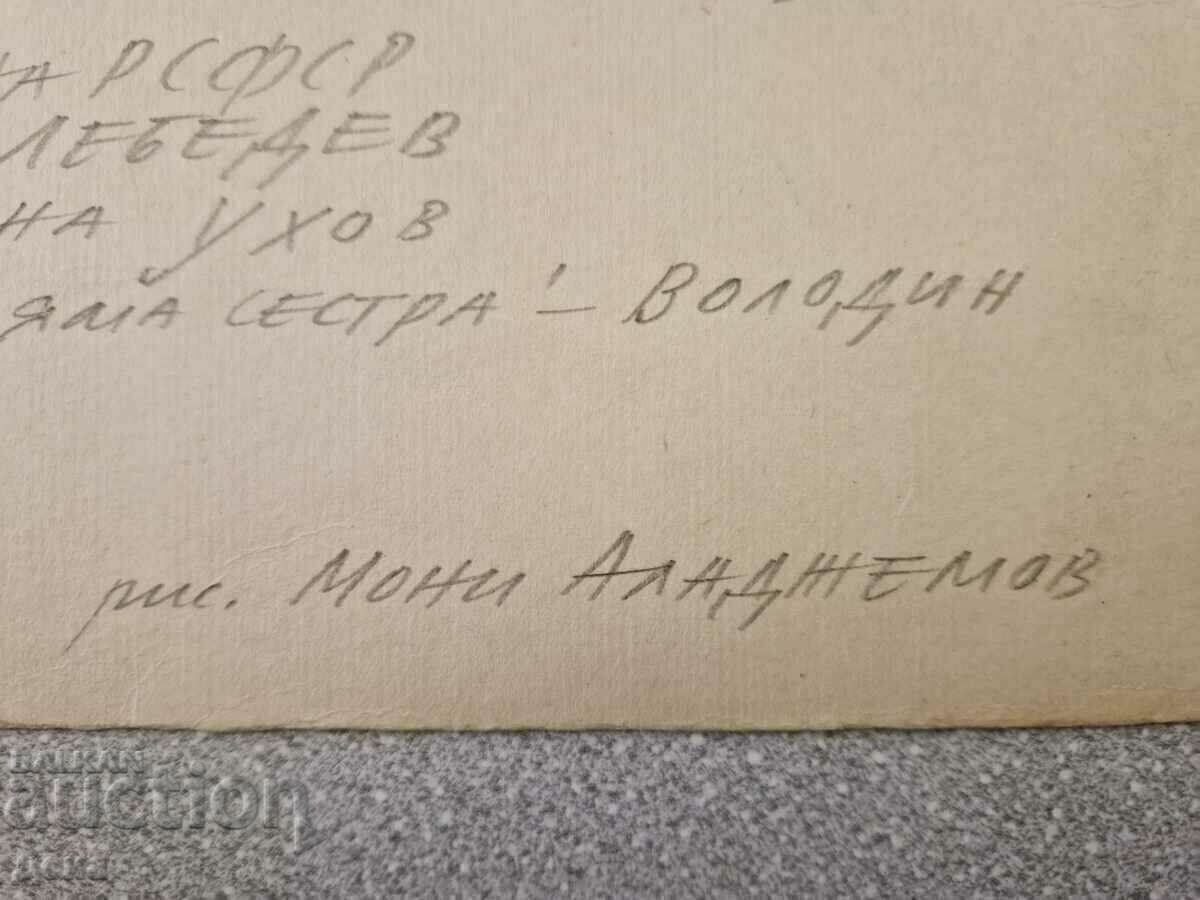 на РСФСР
ЛЕБЕДЕВ
НА УХОВ
ЯМА СЕСТРА' – ВОЛОДИН
рис. МОНИ АЛАДЖЕМОВ
БАLKAN
auction